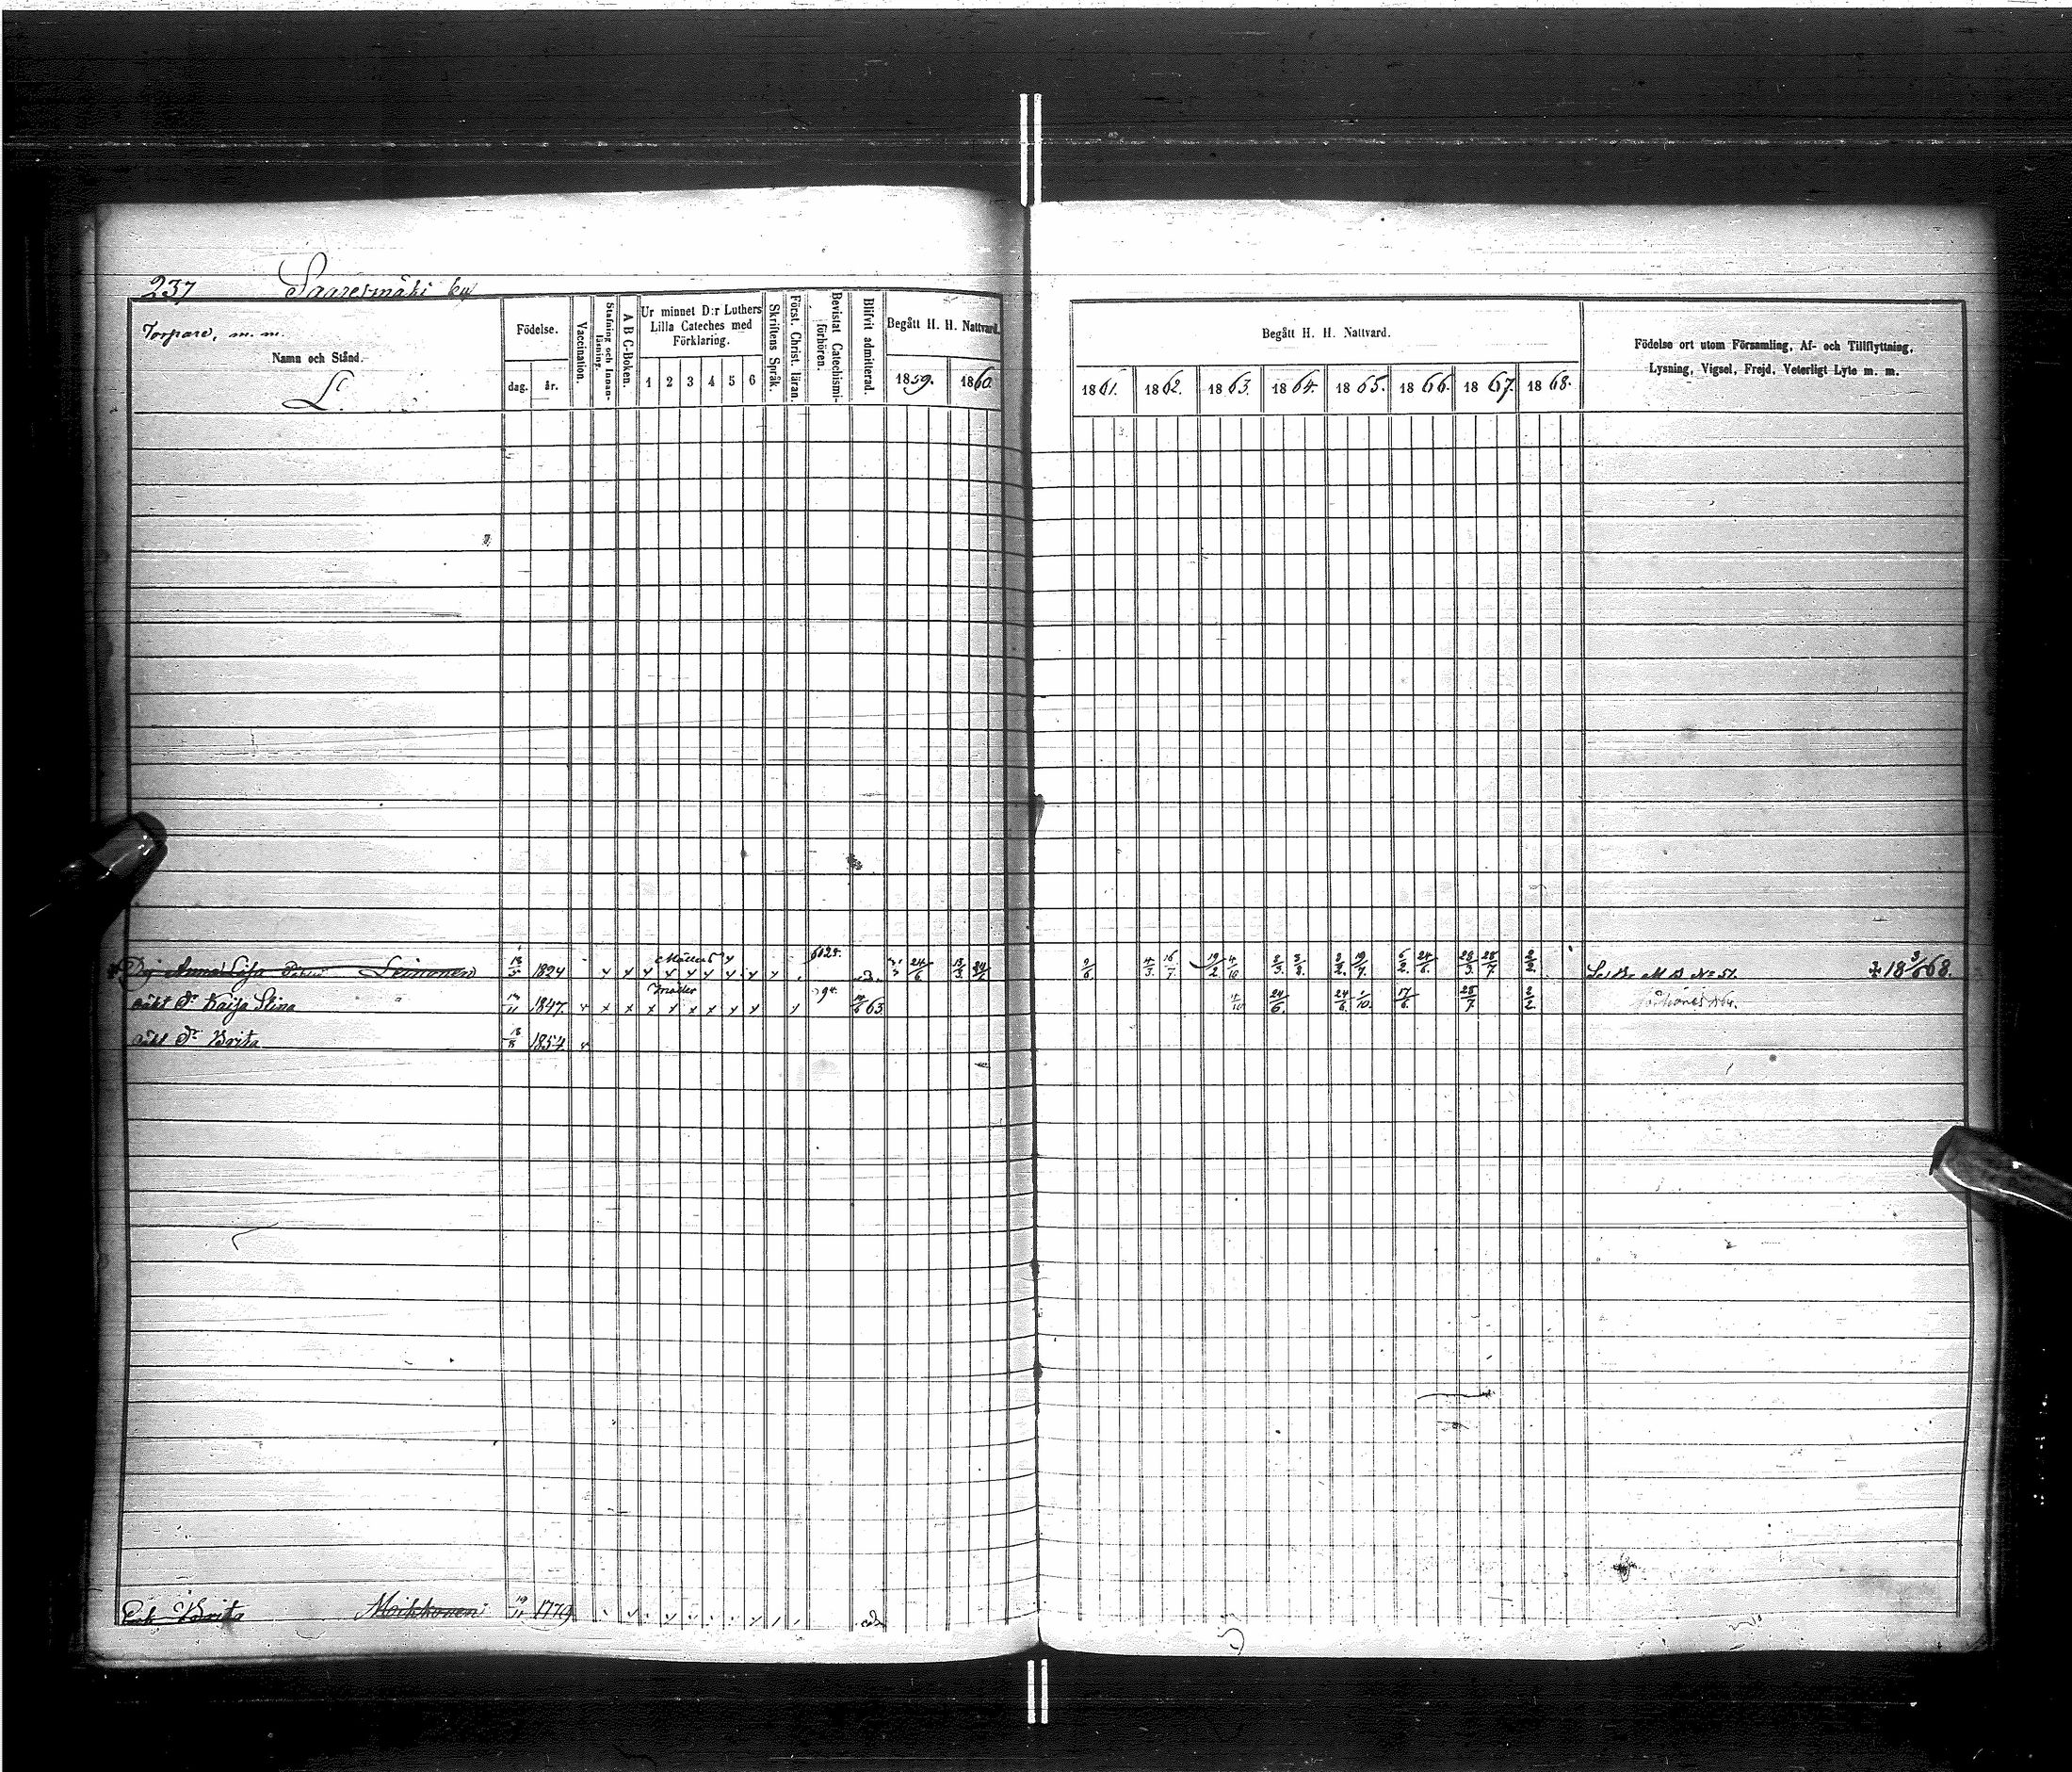 237 Saaresmäki by
Torpare, m. m.
Namn och Stånd.
L.
Födelse.
dag. år.
Vaccination.
Stafning och Innan-läsning.
A B C-Boken.
Ur minnet D:r Luthers Lilla Cateches med Förklaring.
1 2 3 4 5 6
Skriftens Språk.
Först. Christ. läran.
Bevistat Catechismi-förhören.
Blifvit admitterad.
Begått H. H. Nattvard.
1859. 1860.
Begått H. H. Nattvard.
1861. 1862. 1863. 1864. 1865. 1866. 1867. 1868.
Födelse ort utom Församling, Af- och Tillflyttning,
Lysning, Vigsel, Frejd, Veterligt Lyte m. m.
Anna Lisa Leinonen 1824 2/6 4/3 16/7 19/2 4/10 2/2 19/7 6/2 24/6 28/7 2/2 M B No 51. 18 3/6 68.
oäkt Dr Kaija Stina 1847. 63 4/10 24/6 24/6 1/10 17/6 28/7 2/2
oäkt Dr Brita 1854
Enk. Brita Moikkonen 19/11 1779